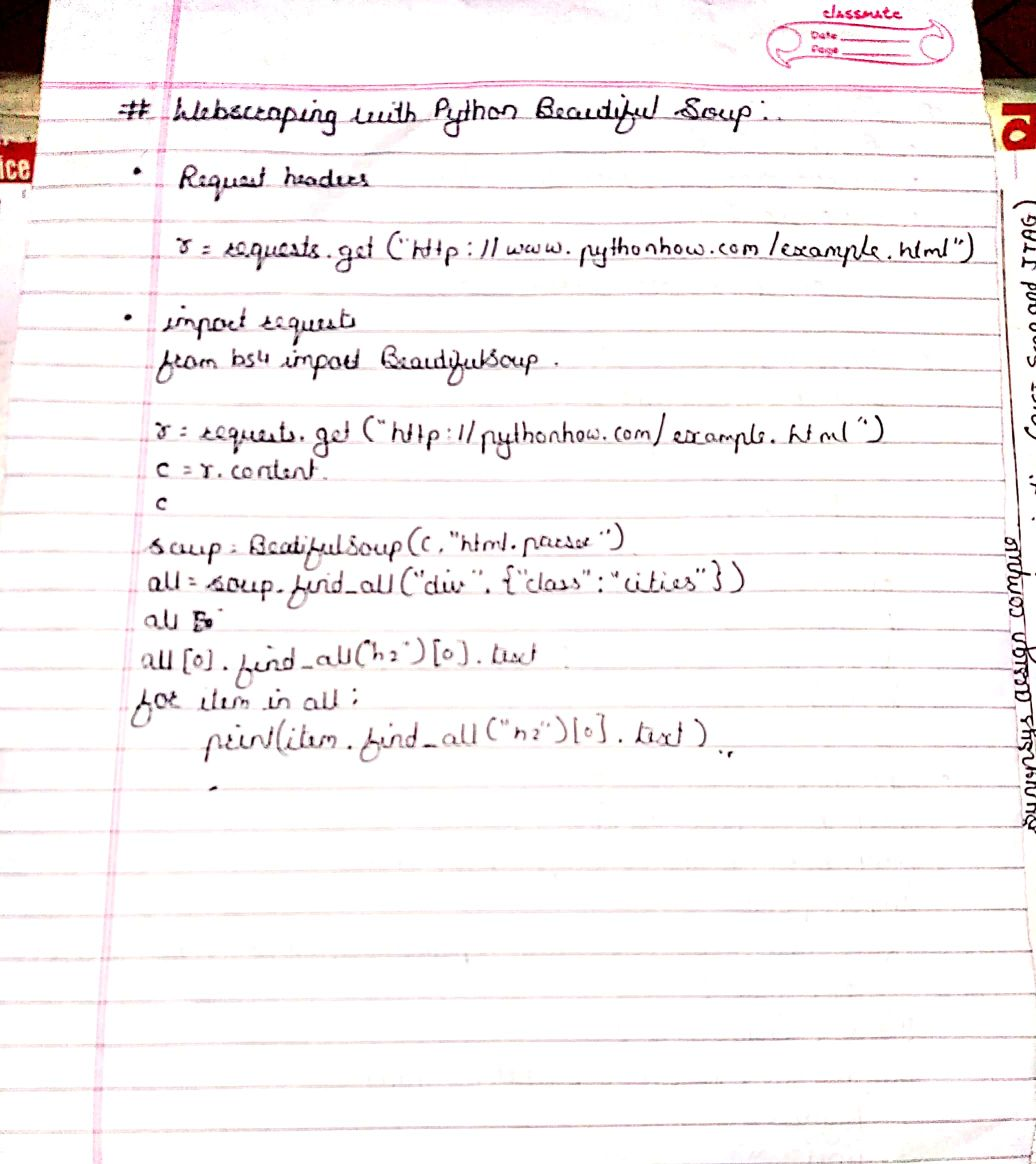 classmate
Date
Page
## Webscraping with Python Beautiful Soup:.
ice
• Request headers
r = requests.get ("http://www.pythonhow.com/example.html")
• import requests
from bs4 import BeautifulSoup.
r = requests.get ("http://pythonhow.com/example.html")
c = r.content.
c
soup = BeatifulSoup(c,"html.parser")
all = soup.find_all("div", {"class":"cities"})
all
all [0].find_all("h2")[0].text
for item in all:
print(item.find_all("h2")[0].text)
and JTAG)
design compile